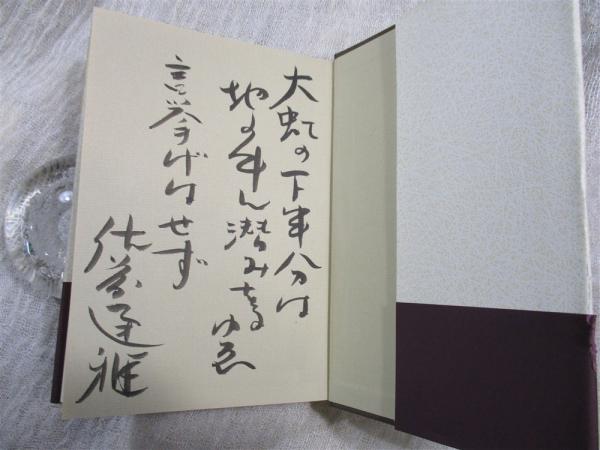 大虹の下半分は
地の に潜みをるゆゑ
言挙げはせず
佐藤通雅